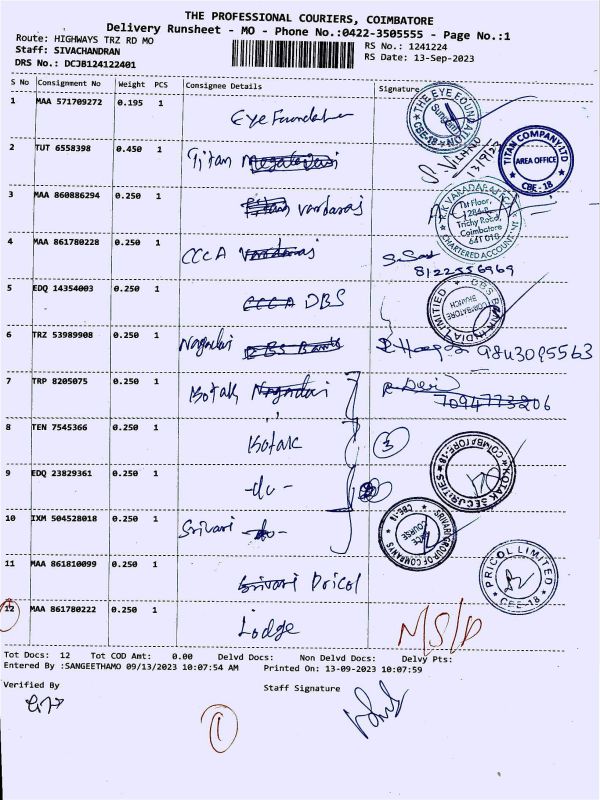 THE PROFESSIONAL COURIERS, COIMBATORE
Delivery Runsheet - MO - Phone No.:0422-3505555 - Page No.:1
Route: HIGHWAYS TRZ RD MO
RS No.: 1241224
Staff: SIVACHANDRAN
RS Date: 13-Sep-2023
DRS No.: DCJB124122401
S No Consignment No Weight PCS Consignee Details Signature
1 MAA 571709272 0.195 1 Eye Foundation
THE EYE FOUNDATION CBE-18
2 TUT 6558398 0.450 1 Titan
13/9/23
TITAN COMPANY LTD AREA OFFICE CBE - 18
3 MAA 860886294 0.250 1 Titan Vardaraj
1st Floor,
Trichy Road,
Coimbatore
CHARTERED ACCOUNTANT
4 MAA 861780228 0.250 1 CCCA Vardaraj
8122556969
5 EDQ 14354003 0.250 1 CCCA DBS
DBS BANK INDIA LIMITED COIMBATORE BRANCH
6 TRZ 53989908 0.250 1 DBS Bank
9843095563
7 TRP 8205075 0.250 1 Kotak
R. Devi
7094773206
8 TEN 7545366 0.250 1 Kotak
3
KOTAK SECURITIES COIMBATORE-18
9 EDQ 23829361 0.250 1 -do-
10 IXM 504528018 0.250 1 Srivari -do-
SRIVARI GROUP OF COMPANYS CBE-18
11 MAA 861810099 0.250 1 Srivari Pricol
PRICOL LIMITED CBE-18
12 MAA 861780222 0.250 1 Lodge
N/S/P
Tot Docs: 12 Tot COD Amt: 0.00 Delvd Docs: Non Delvd Docs: Delvy Pts:
Entered By :SANGEETHAMO 09/13/2023 10:07:54 AM Printed On: 13-09-2023 10:07:59
Verified By Staff Signature
1